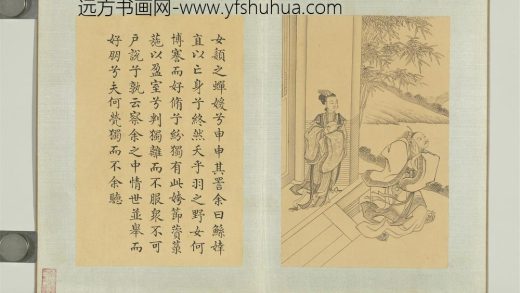 远方书画网-www.yfshuhua.com
女嬃之嬋媛兮申申其詈余曰鯀婞
直以亡身兮終然夭乎羽之野女何
博謇而好脩兮紛獨有此姱節薋菉
葹以盈室兮判獨離而不服衆不可
戶說兮孰云察余之中情世並舉而
好朋兮夫何煢獨而不余聽